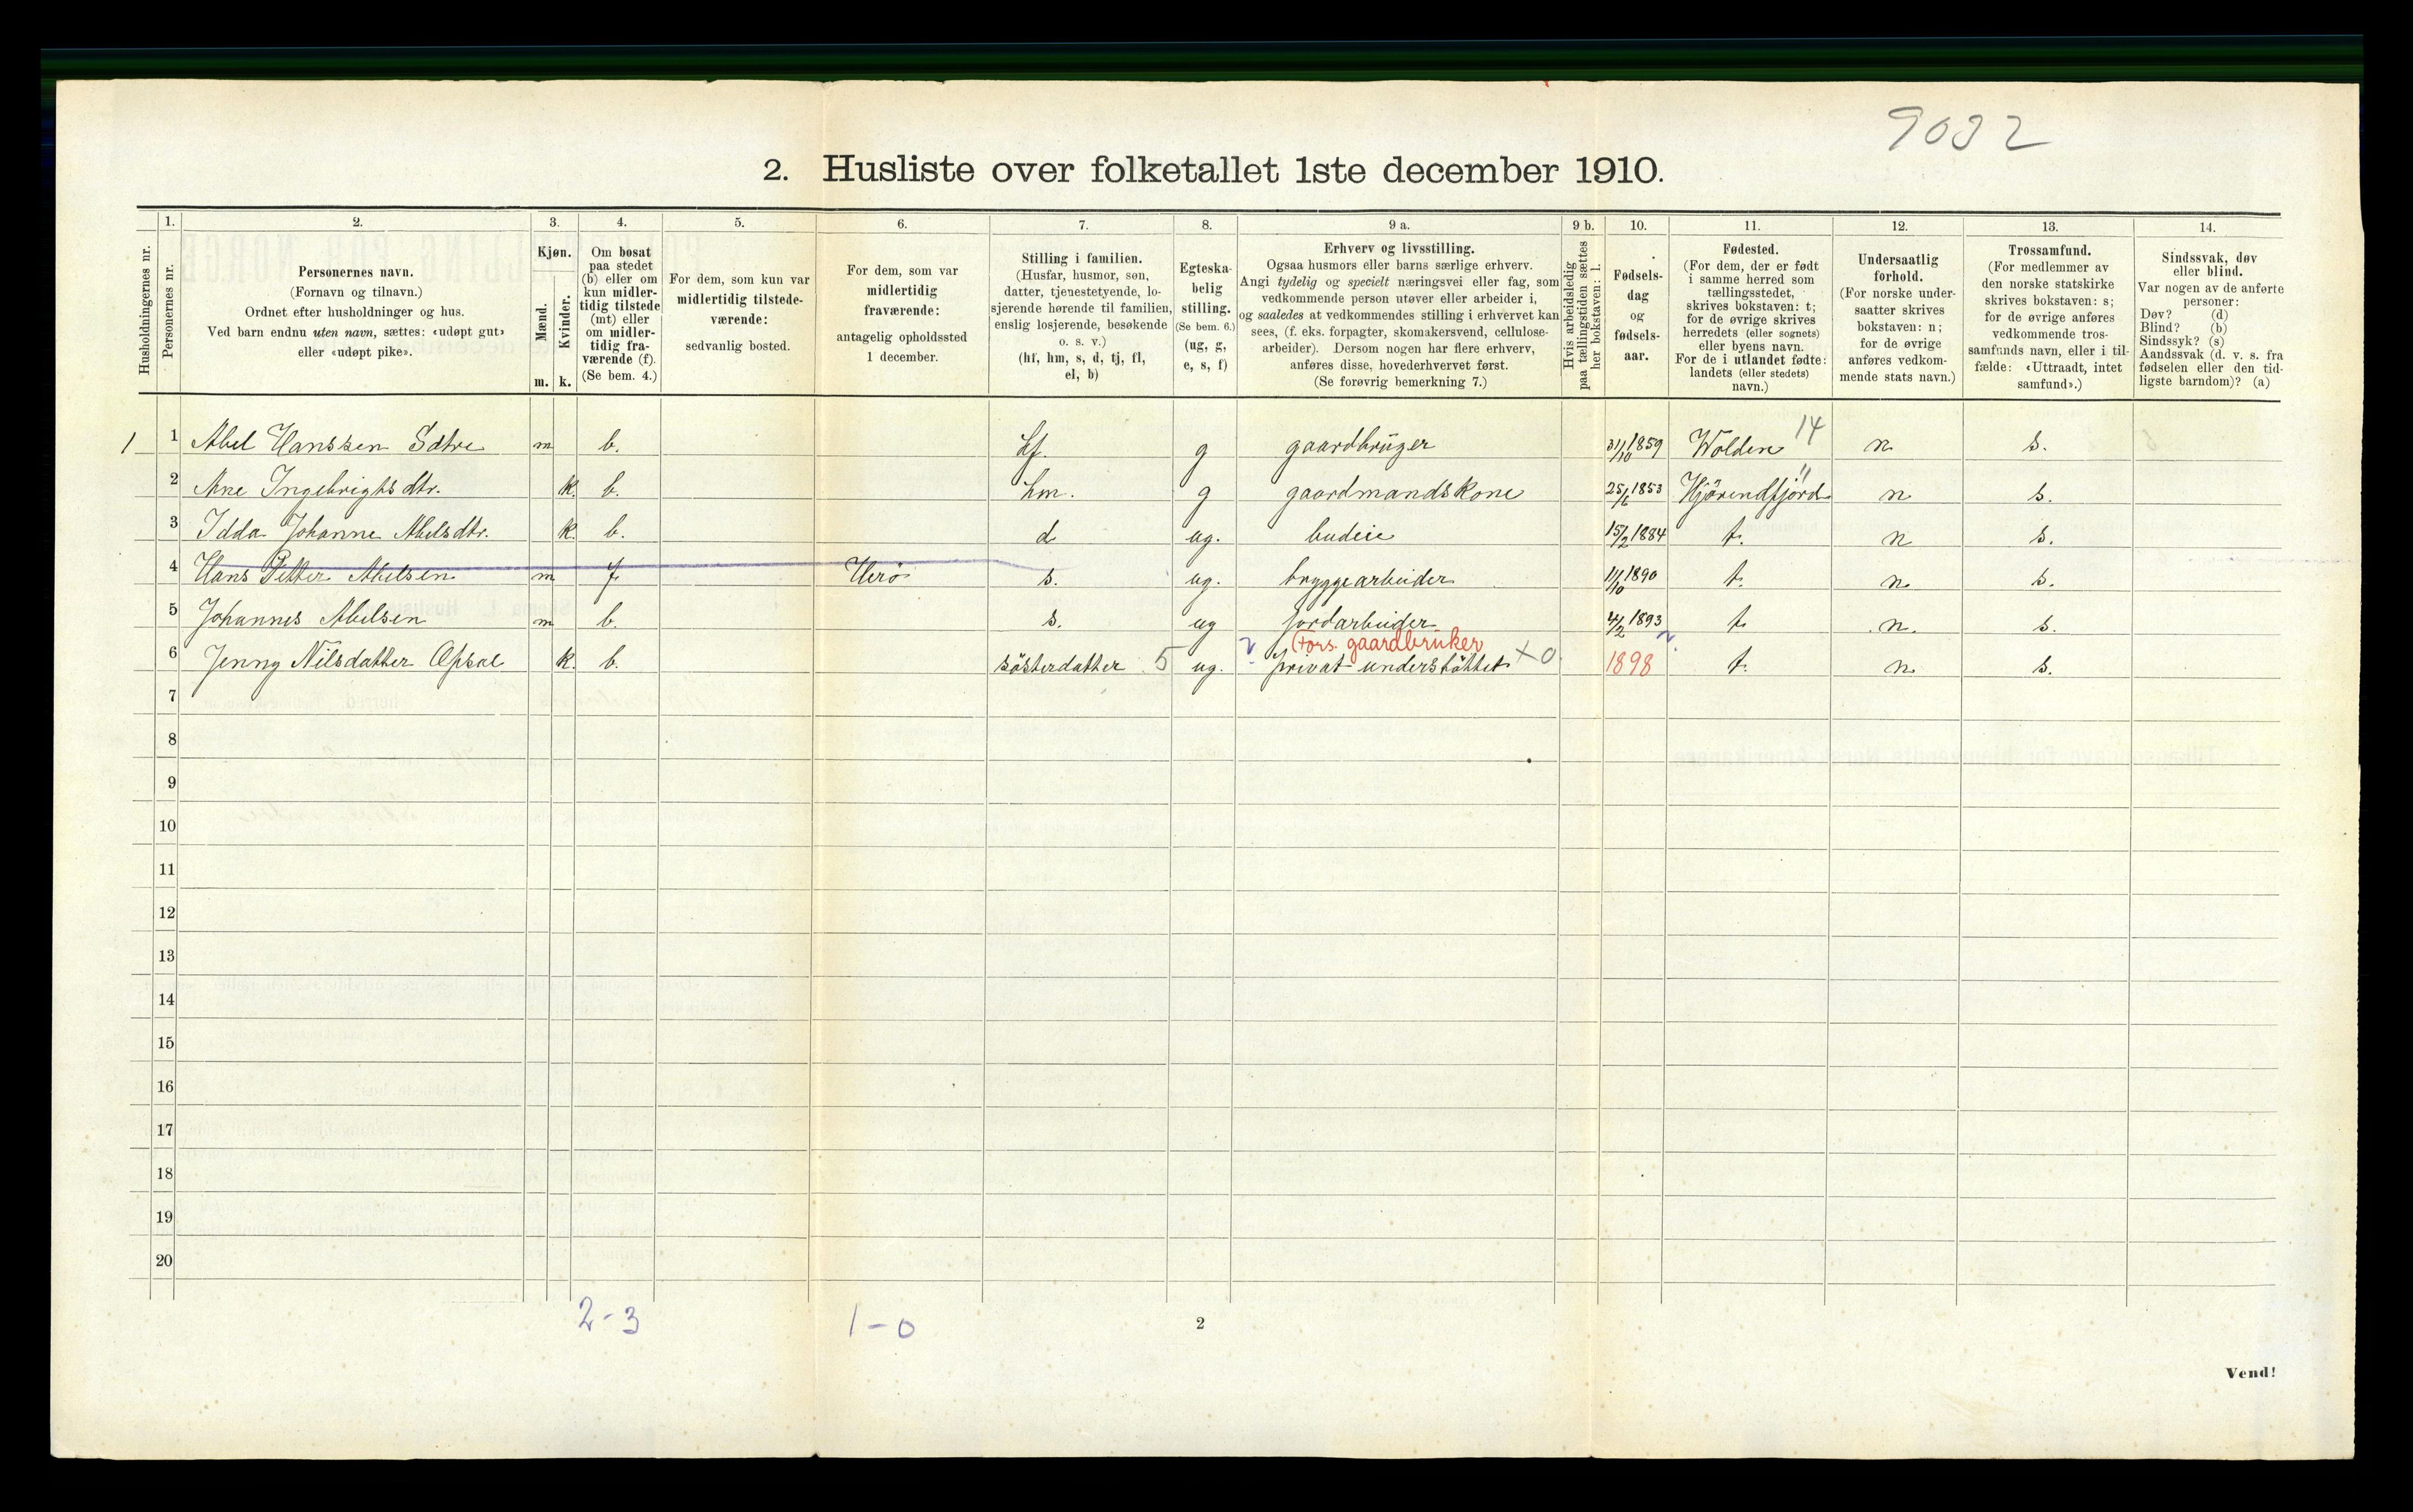 9032
2. Husliste over folketallet 1ste december 1910.
Husholdningernes nr.
1.
Personernes nr.
2.
Personernes navn.
(Fornavn og tilnavn.)
Ordnet efter husholdninger og hus.
Ved barn endnu uten navn, sættes: «udøpt gut»
eller «udøpt pike».
3.
Kjøn.
Mænd.
Kvinder.
m. k.
4.
Om bosat
paa stedet
(b) eller om
kun midler-
tidig tilstede
(mt) eller
om midler-
tidig fra-
værende (f).
(Se bem. 4.)
5.
For dem, som kun var
midlertidig tilstede-
værende:
sedvanlig bosted.
6.
For dem, som var
midlertidig
fraværende:
antagelig opholdssted
1 december.
7.
Stilling i familien.
(Husfar, husmor, søn,
datter, tjenestetyende, lo-
sjerende hørende til familien,
enslig losjerende, besøkende
o. s. v.)
(hf, hm, s, d, tj, fl,
el, b)
8.
Egteska-
belig
stilling.
(Se bem. 6.)
(ug, g,
e, s, f)
9 a.
Erhverv og livsstilling.
Ogsaa husmors eller barns særlige erhverv.
Angi tydelig og specielt næringsvei eller fag, som
vedkommende person utøver eller arbeider i,
og saaledes at vedkommendes stilling i erhvervet kan
sees, (f. eks. forpagter, skomakersvend, cellulose-
arbeider). Dersom nogen har flere erhverv,
anføres disse, hovederhvervet først.
(Se forøvrig bemerkning 7.)
9 b.
Hvis arbeidsledig
paa tællingstiden sættes
her bokstaven: l.
10.
Fødsels-
dag
og
fødsels-
aar.
11.
Fødested.
(For dem, der er født
i samme herred som
tællingsstedet,
skrives bokstaven: t;
for de øvrige skrives
herredets (eller sognets)
eller byens navn.
For de i utlandet fødte:
landets (eller stedets)
navn.)
12.
Undersaatlig
forhold.
(For norske under-
saatter skrives
bokstaven: n;
for de øvrige
anføres vedkom-
mende stats navn.)
13.
Trossamfund.
(For medlemmer av
den norske statskirke
skrives bokstaven: s;
for de øvrige anføres
vedkommende tros-
samfunds navn, eller i til-
fælde: «Uttraadt, intet
samfund».)
14.
Sindssvak, døv
eller blind.
Var nogen av de anførte
personer:
Døv? (d)
Blind? (b)
Sindssyk? (s)
Aandssvak (d. v. s. fra
fødselen eller den tid-
ligste barndom)? (a)
1 1 Abel Hanssen Sætre m b. hf. g gaardbruger 31/10 1859 Wolden 14 n s.
2 Ane Ingebrigtsdtr. k. b. hm. g gaardmandskone 25/6 1853 Hjörendfjord " n s.
3 Idda Johanne Abelsdtr. k. b. d ug. budeie 15/2 1884 t. n s.
4 Hans Petter Abelsen m f Herö s. ug. bryggearbeider 1/10 1890 t. n s.
5 Johannes Abelsen m b. s. ug jordarbeider 4/2 1893 t. n. s.
(Fors. gaardbruker
6 Jenny Nilsdatter Opsal k. b. søsterdatter 5 ug. privat understöttet x0. 1898 t. n s.
7
8
9
10
11
12
13
14
15
16
17
18
19
20
2-3 1-0
2
Vend!